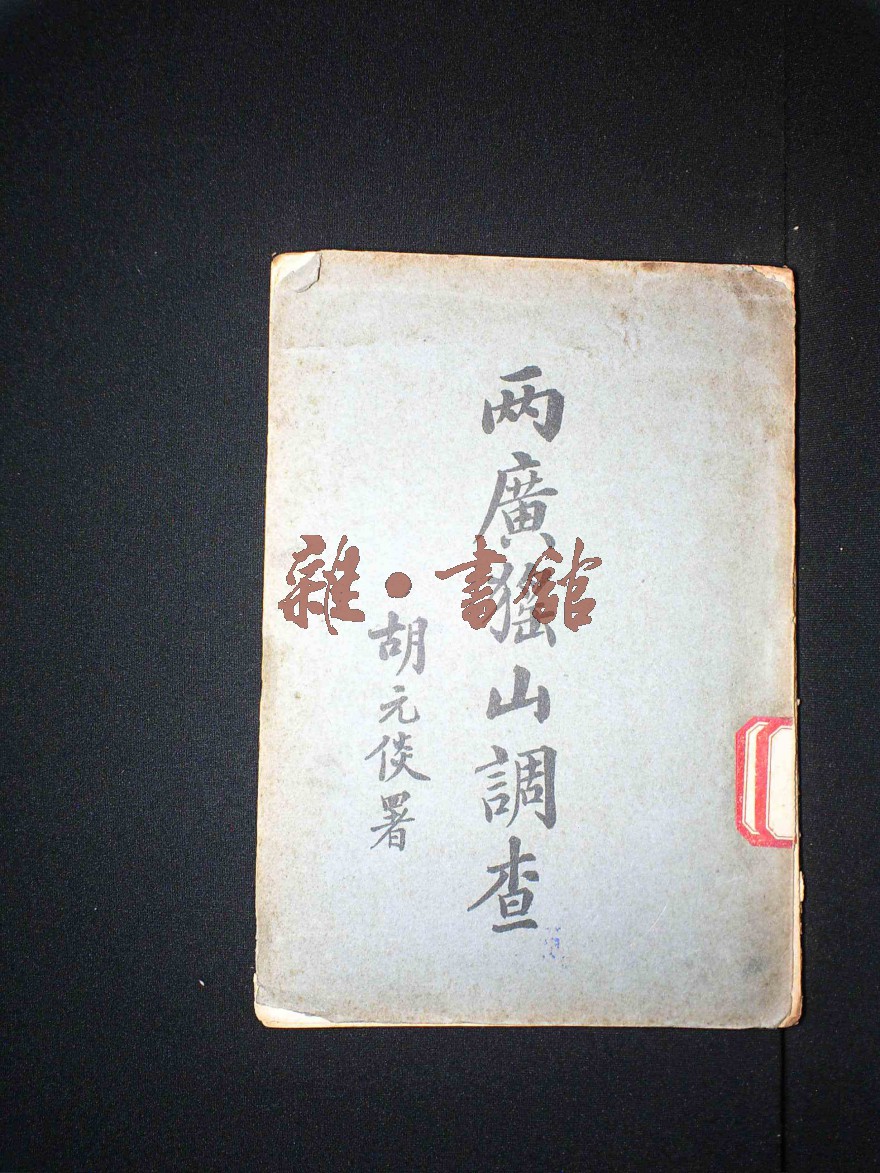 两廣猺山調查
胡元倓署
雜·書館